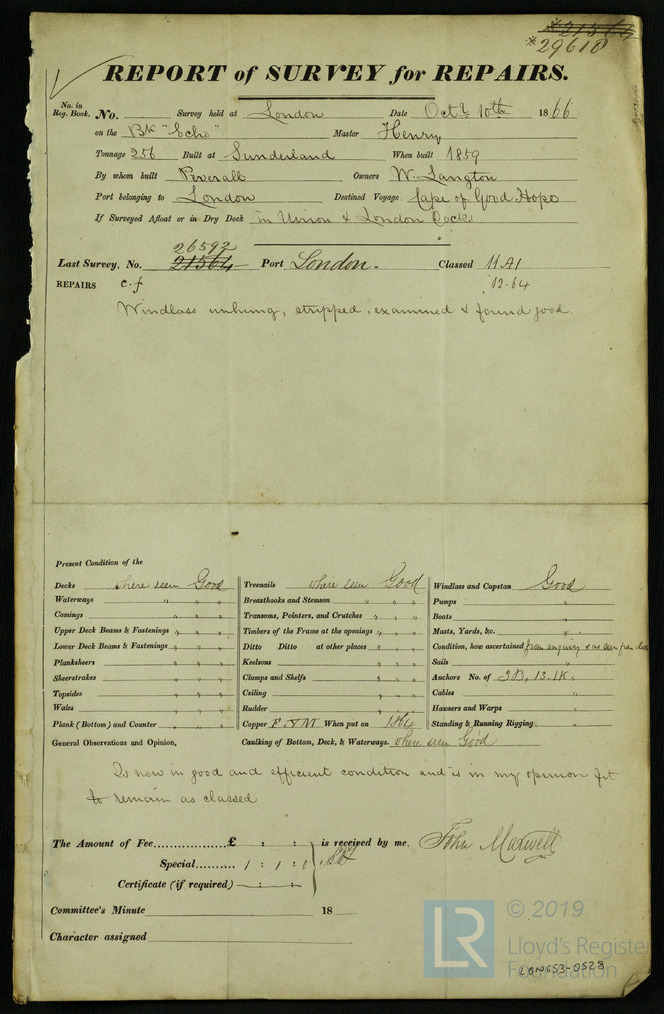 *21564
*29618
REPORT of SURVEY for REPAIRS.
No. in
Reg. Book. No. Survey held at London Date Octr 10th 1866
on the Bk "Echo" Master Henry
Tonnage 256 Built at Sunderland When built 1859
By whom built Peverall Owners W. Langton
Port belonging to London Destined Voyage Cape of Good Hope
If Surveyed Afloat or in Dry Dock in Union & London Docks
26592
Last Survey, No. 21564 Port London. Classed 11A1
REPAIRS c.f 12.64
Windlass unhung, stripped, examined & found good.
Present Condition of the
Decks where seen Good Treenails where seen Good Windlass and Capstan Good
Waterways " " " Breasthooks and Stemson " " " Pumps "
Comings " " " Transoms, Pointers, and Crutches " " " Boats "
Upper Deck Beams & Fastenings " " " Timbers of the Frame at the openings " " " Masts, Yards, &c. "
Lower Deck Beams & Fastenings " " " Ditto Ditto at other places " " " Condition, how ascertained from enquiry & as seen from deck
Planksheers " " " Keelsons " " " Sails "
Sheerstrakes " " " Clamps and Shelfs " " " Anchors No. of 3B, 1S. 1K.
Topsides " " " Ceiling " " " Cables "
Wales " " " Rudder " " " Hawsers and Warps "
Plank (Bottom) and Counter " " " Copper F & M When put on 1864 Standing & Running Rigging "
General Observations and Opinion, Caulking of Bottom, Deck, & Waterways. where seen Good
Is now in good and efficient condition and is in my opinion fit
to remain as classed
The Amount of Fee £ : : is received by me, John Maxwell
Special 1 : 1 : 0
Certificate (if required) — : —
Committee's Minute 18
Character assigned
LR © 2019
Lloyd's Register
Foundation
LON653-0528